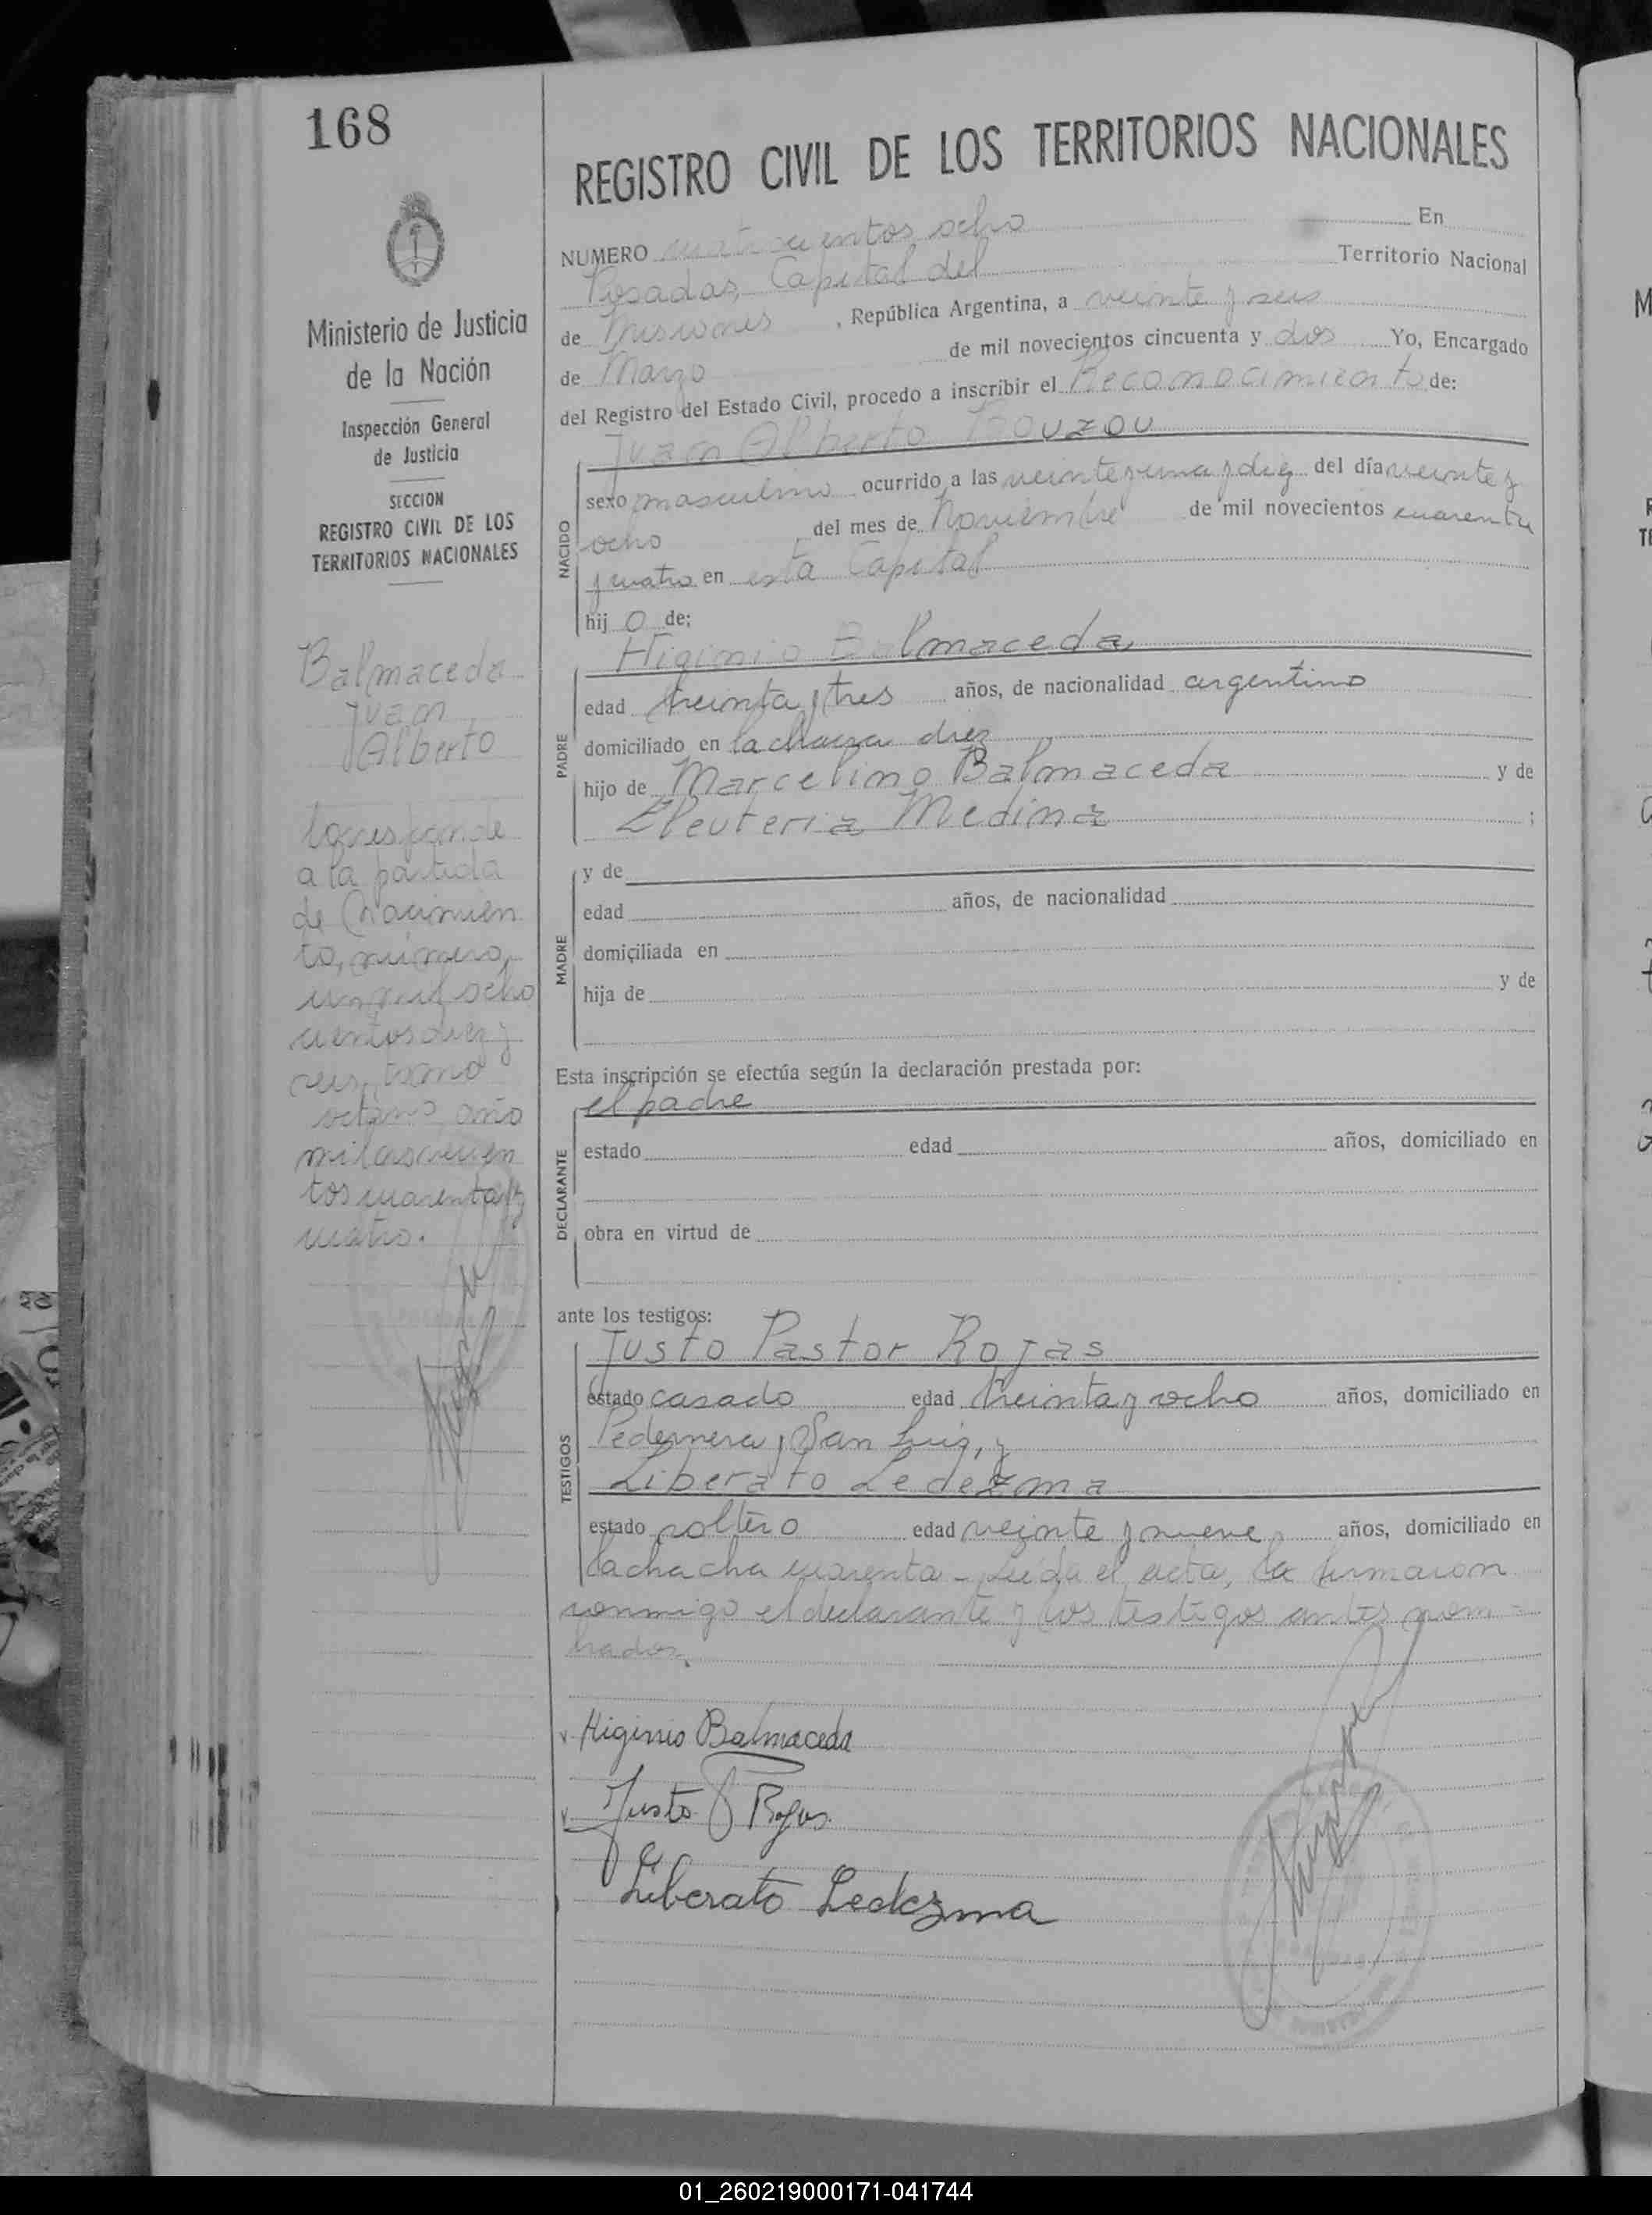 168
REGISTRO CIVIL DE LOS TERRITORIOS NACIONALES
Ministerio de Justicia
de la Nación
Inspección General
de Justicia
SECCION
REGISTRO CIVIL DE LOS
TERRITORIOS NACIONALES
Balmaceda
Juan
Alberto
Corresponde
a la partida
de Nacimien
to, número,
un mil ocho
cientos diez y
seis, tomo
octavo año
mil novecien
tos cuarenta y
cuatro.
NUMERO cuatrocientos ocho En
Posadas, Capital del Territorio Nacional
de Misiones, República Argentina, a veinte y seis
de Marzo de mil novecientos cincuenta y dos Yo, Encargado
del Registro del Estado Civil, procedo a inscribir el Reconocimiento de:
Juan Alberto
NACIDO
sexo masculino ocurrido a las veinte y una y diez del día veinte y
ocho del mes de Noviembre de mil novecientos cuarenta
y cuatro en esta Capital
hijo de:
Higinio Balmaceda
PADRE
edad treinta y tres años, de nacionalidad argentino
domiciliado en la chacra diez
hijo de Marcelino Balmaceda y de
Eleuteria Medina ;
MADRE
y de
edad años, de nacionalidad
domiciliada en
hija de y de
Esta inscripción se efectúa según la declaración prestada por:
el padre
DECLARANTE
estado edad años, domiciliado en
obra en virtud de
ante los testigos:
Justo Pastor Rojas
TESTIGOS
estado casado edad treinta y ocho años, domiciliado en
Pedernera y San Luis, y
Liberato Ledezma
estado soltero edad veinte y nueve, años, domiciliado en
la chacha cuarenta - Leída el acta, la firmaron
conmigo el declarante y los testigos antes nom-
brados.
Higinio Balmaceda
Justo P Rojas
Liberato Ledezma
01_260219000171-041744